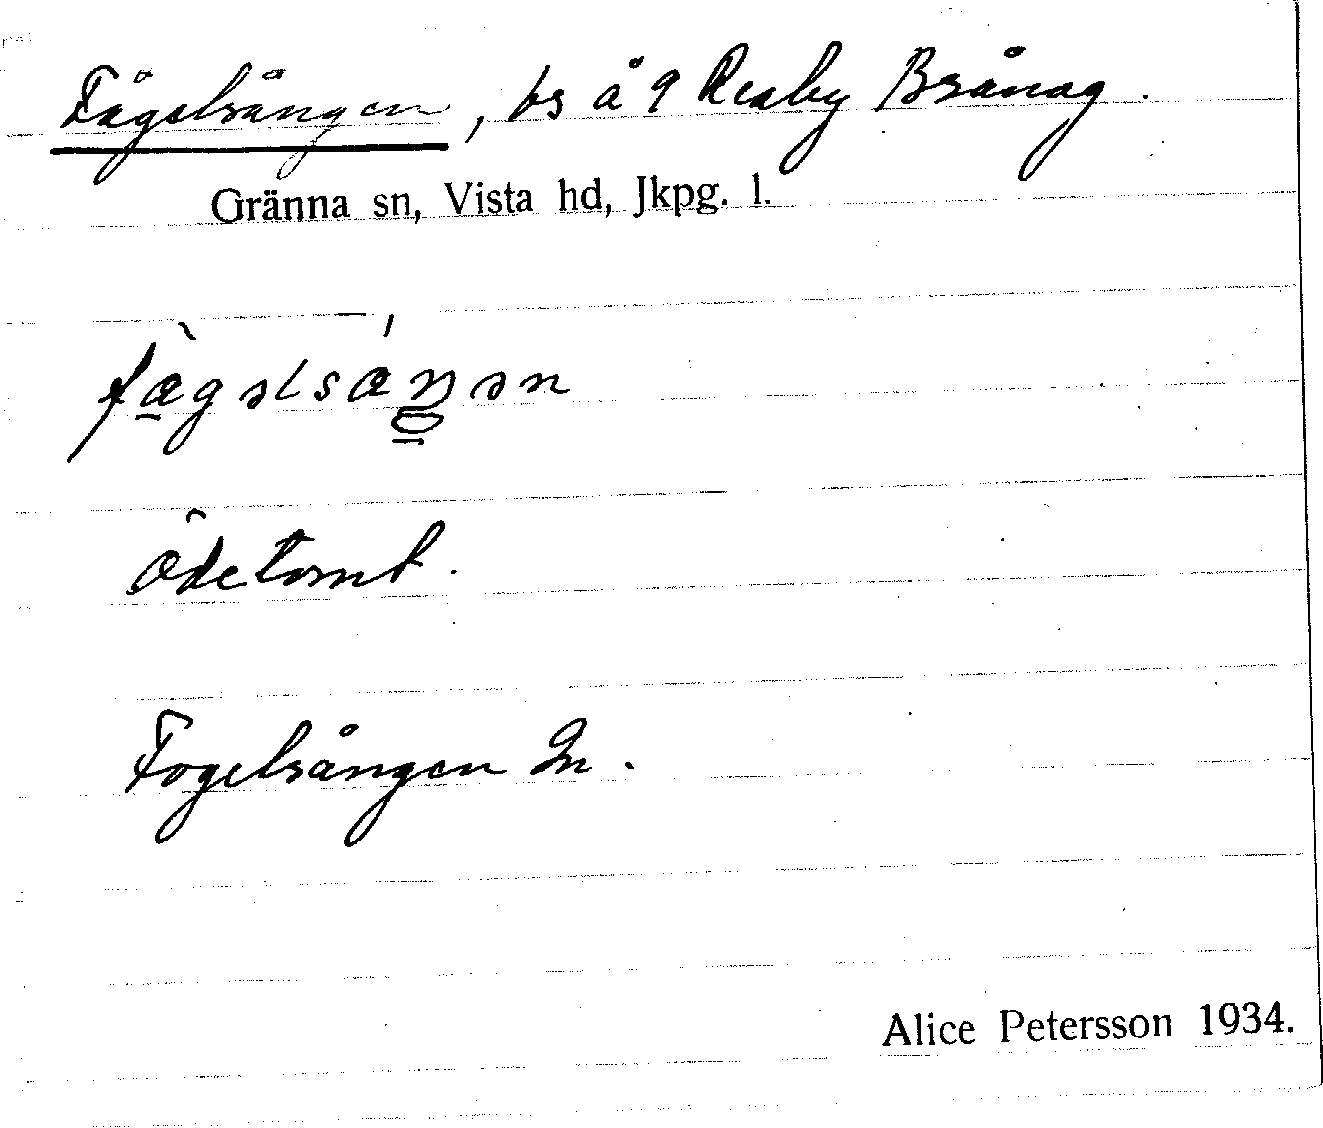 Fågelsången, bs å 9 Reaby Brånag.
Gränna sn, Vista hd, Jkpg. l.
Ödetomt.
Fogelsången Gn.
Alice Petersson 1934.